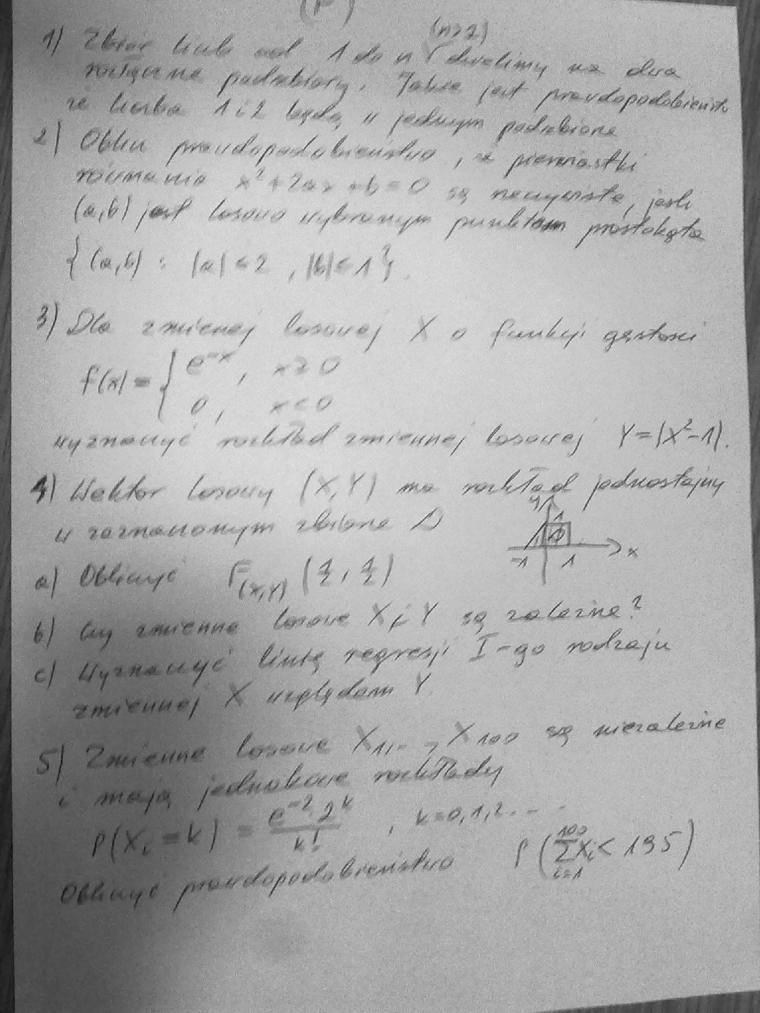 (P)
(n>2)
1) Zbiór liczb od 1 do n dzielimy na dwa
rozłączne podzbiory. Jakie jest prawdopodobieństwo
że liczba 1 i 2 będą w jednym podzbiorze
2) Oblicz prawdopodobieństwo, że pierwiastki
równania x²+2ax+b=0 są rzeczywiste, jeśli
(a,b) jest losowo wybranym punktem prostokąta
{(a,b) : |a|≤2, |b|≤1}.
3) Dla zmiennej losowej X o funkcji gęstości
f(x) = { e^{-x}, x≥0
0, x<0
wyznaczyć rozkład zmiennej losowej Y=|X²-1|.
4) Wektor losowy (X,Y) ma rozkład jednostajny
w zaznaczonym zbiorze D
y 1 D
-1 1 x
a) Obliczyć F_{(X,Y)} (1/2, 1/2)
b) Czy zmienne losowe X i Y są zależne?
c) Wyznaczyć linię regresji I-go rodzaju
zmiennej X względem Y.
5) Zmienne losowe X_1, ..., X_100 są niezależne
i mają jednakowe rozkłady
P(X_i=k) = e^{-2} 2^k / k! , k=0,1,2....
Obliczyć prawdopodobieństwo P(∑_{i=1}^{100} X_i < 195)